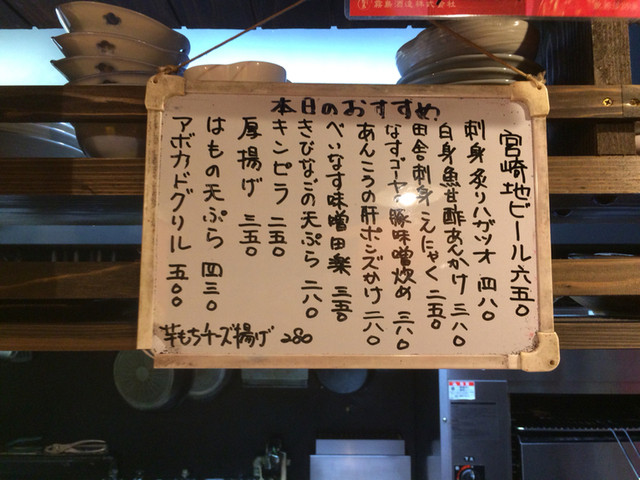 霧島酒造株式会社
本日のおすすめ
宮崎地ビール 六五〇
刺身炙りハガツオ 四八〇
白身魚甘酢あんかけ 三八〇
田舎刺身こんにゃく 二五〇
なすゴーヤの豚味噌炒め 三六〇
あんこうの肝ポンズかけ 二八〇
べいなす味噌田楽 三五〇
きびなごの天ぷら 二八〇
キンピラ 二五〇
厚揚げ 三五〇
はもの天ぷら 四三〇
アボカドグリル 五〇〇
芋もちチーズ揚げ 280